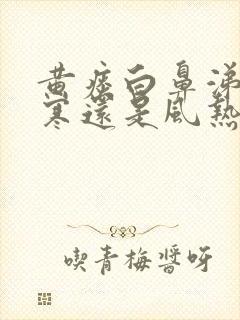 黄痰白鼻涕
寒還是風熱
喫青梅醬呀